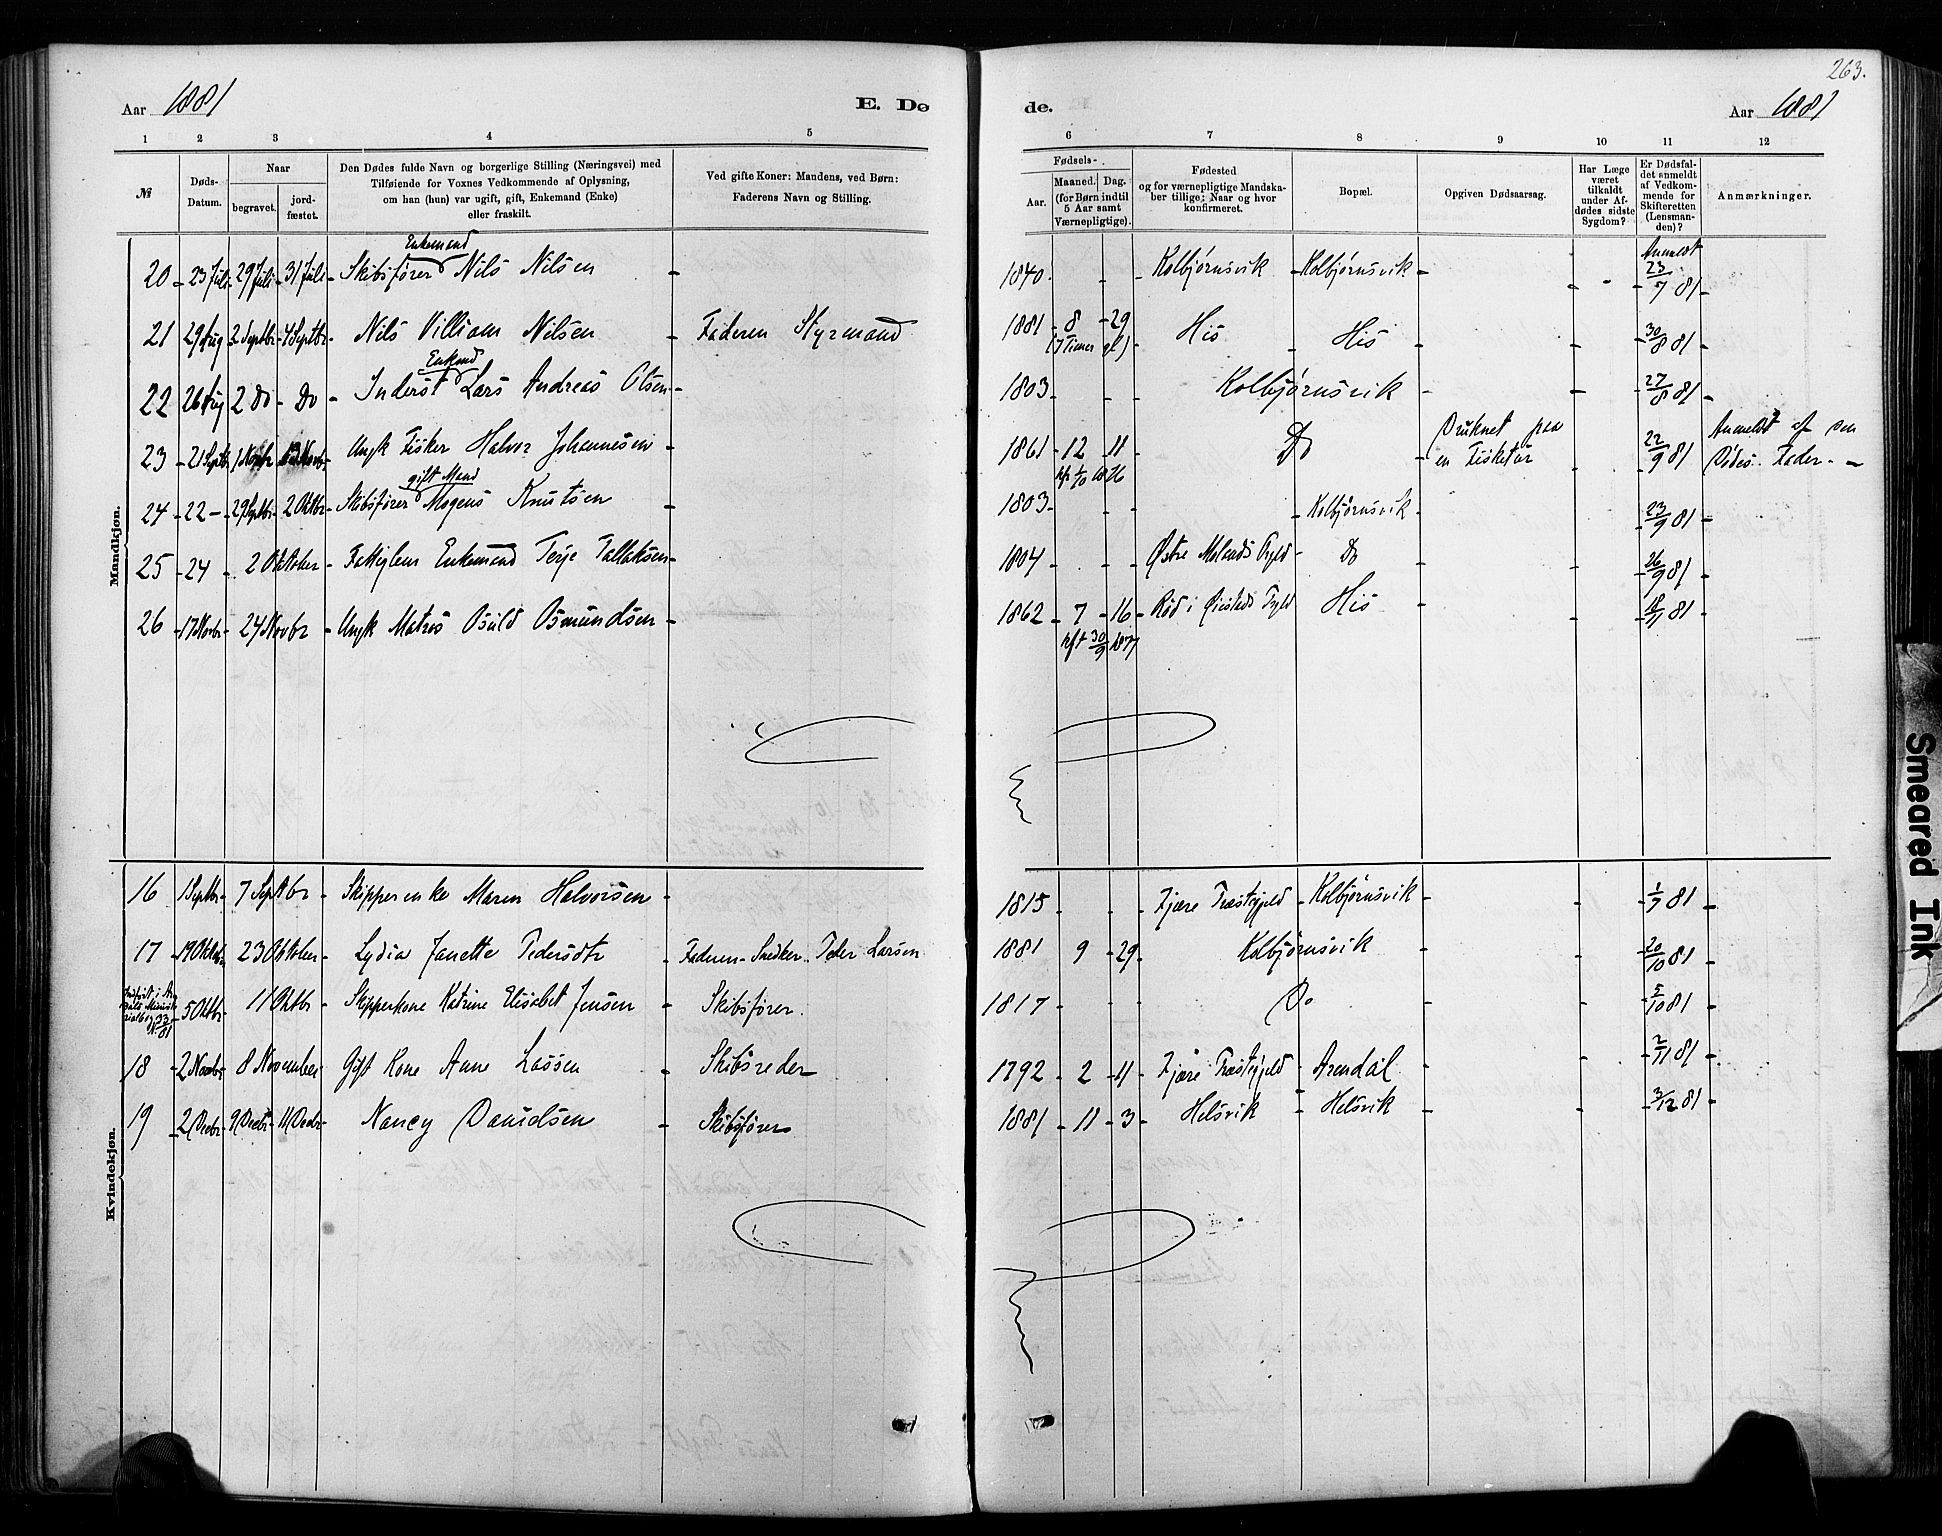 263.
Aar 1881 E. Dø de. Aar 1881
1 2 3 4 5 6 7 8 9 10 11 12
№
Døds-Datum.
Naar
begravet.
jord-fæstet.
Den Dødes fulde Navn og borgerlige Stilling (Næringsvei) med
Tilføiende for Voxnes Vedkommende af Oplysning,
om han (hun) var ugift, gift, Enkemand (Enke)
eller fraskilt.
Ved gifte Koner: Mandens, ved Børn:
Faderens Navn og Stilling.
Fødsels-
Aar.
Maaned. Dag.
(for Børn indtil
5 Aar samt
Værnepligtige).
Fødested
og for værnepligtige Mandska-
ber tillige: Naar og hvor
konfirmeret.
Bopæl.
Opgiven Dødsaarsag.
Har Læge
været
tilkaldt
under Af-
dødes sidste
Sygdom?
Er Dødsfal-
det anmeldt
af Vedkom-
mende for
Skifteretten
(Lensman-
den)?
Anmærkninger.
Mandkjøn.
Enkemand
20 - 23 Juli - 29 Juli - 31 Juli - Skibsfører Nils Nilsen - 1840 - - - Kolbjørnsvik - Kolbjørnsvik - - - Anmeldt 23/7 81 -
21 29 Aug 2 Septbr - 4 Septbr - Nils Villiam Nilsen - Faderen Styrmand 1881 - 8 - 29 His - His - - 30/8 81 -
(7 Timer gl)
Enkemd
22 26 Aug 2 Do - Do - Inderst Lars Andreas Olsen - 1803 - - - Kolbjørnsvik - - 27/8 81 -
23 - 21 Septbr 1 Novbr - Ungk Fisker Halvor Johannesen - 1861 - 12 - 11 Do - Druknet paa en Fisketur - 22/9 81 Anmeldt af den Dødes Fader -
gift Mand
24 - 22 - 29 Septbr - 2 Oktbr - Skibsfører Mogens Knutsen - 1803 - - - Kolbjørnsvik - 23/9 81 -
25 - 24 - 2 Oktober - Fattiglem Enkemand Terje Tallaksen - 1804 - - - Østre Molands Pgld - Do - - 26/9 81 -
26 - 17 Novbr - 24 Novbr - Ungk Matros Osuld Osmundsen - 1862 - 7 - 16 - Rød i Øiestads Pgld His - - 18/11 81 -
kft 30/9 1877
Kvindekjøn.
16 1 Septbr - 7 Septbr - Skipperenke Maren Halvorsen - 1815 - - - Fjære Præstegjeld - Kolbjørnsvik - - 1/9 81 -
17 - 19 Oktbr - 23 Oktober - Lydia Janette Pedersdtr - Faderen - Snedker Peder Larsen 1881 9 - 29 Kolbjørnsvik - - 20/10 81 -
5 Oktbr 11 Oktbr - Skipperkone Katrine Elisabet Jensen - Skibsfører. 1817 - - - Do - - 5/10 81 -
18 - 2 Novbr 8 November Gift Kone Anne Lassen - Skibsreder 1792 - 2 - 11 - Fjære Præstegjeld - Arendal - - 2/11 81 -
19 - 2 Decbr - 9 Decbr - 11 Decbr - Nancy Danielsen - Skibsfører 1881 - 11 - 3 - Helsvik - Helsvik - - 3/12 81 -
Smeared Ink